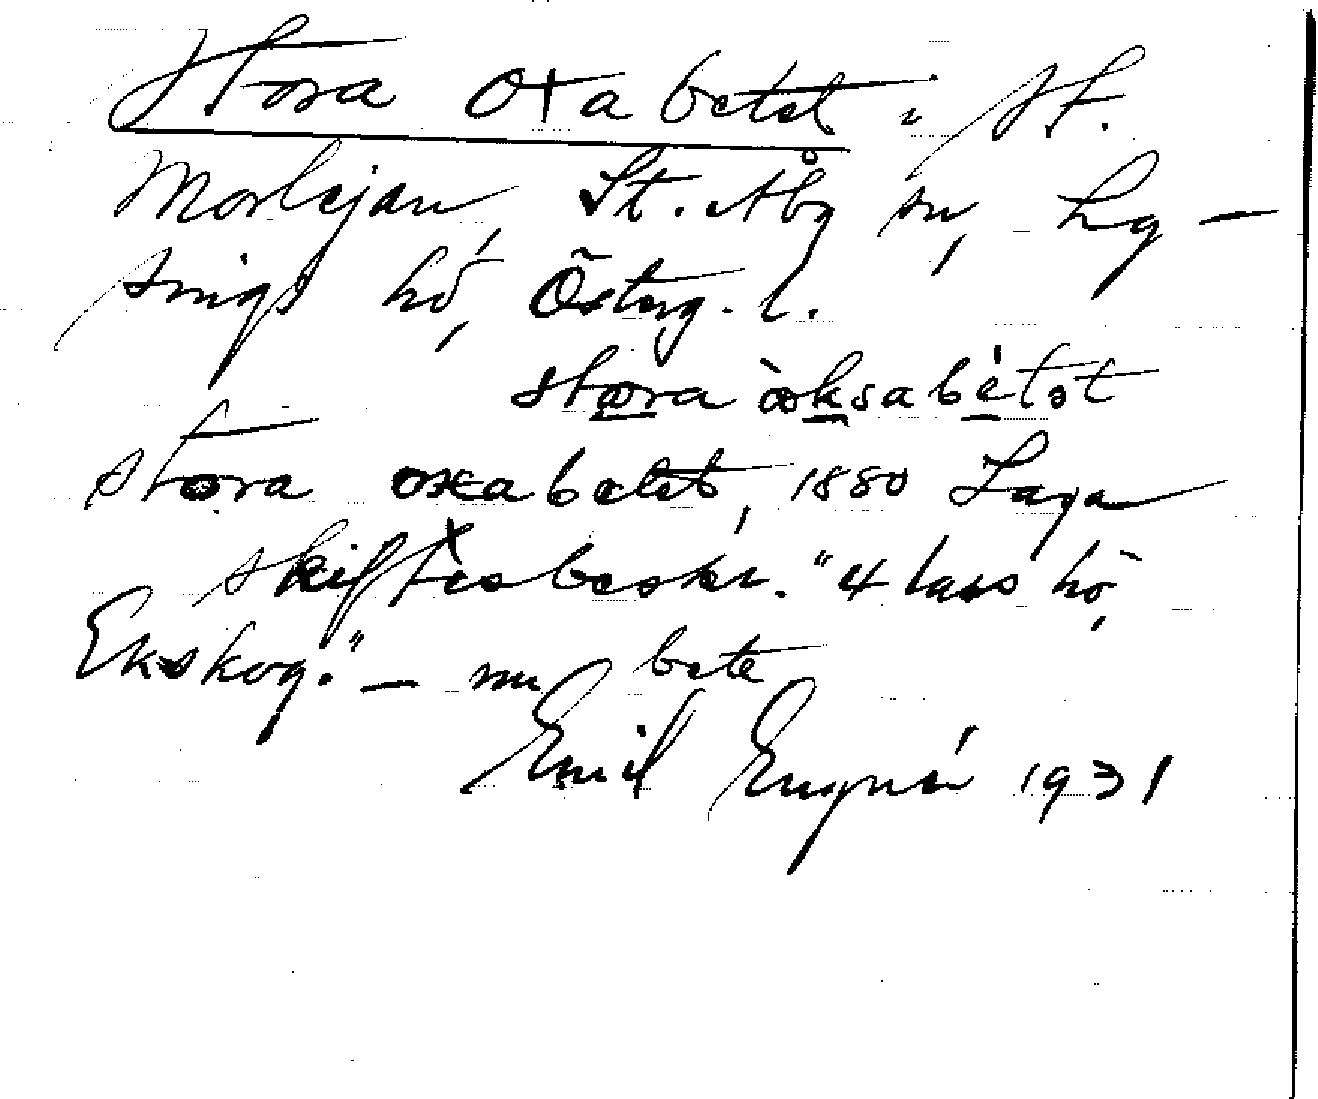 Stora Oxabetet, St.
Morlejan, St. Åby sn, Ly-
sings hd, Österg. l.
stora òksabétət
stora oxabetet, 1880 Laga
skiftesbeskr. "4 lass hö,
Ekskog." — nu bete
Emil 1931